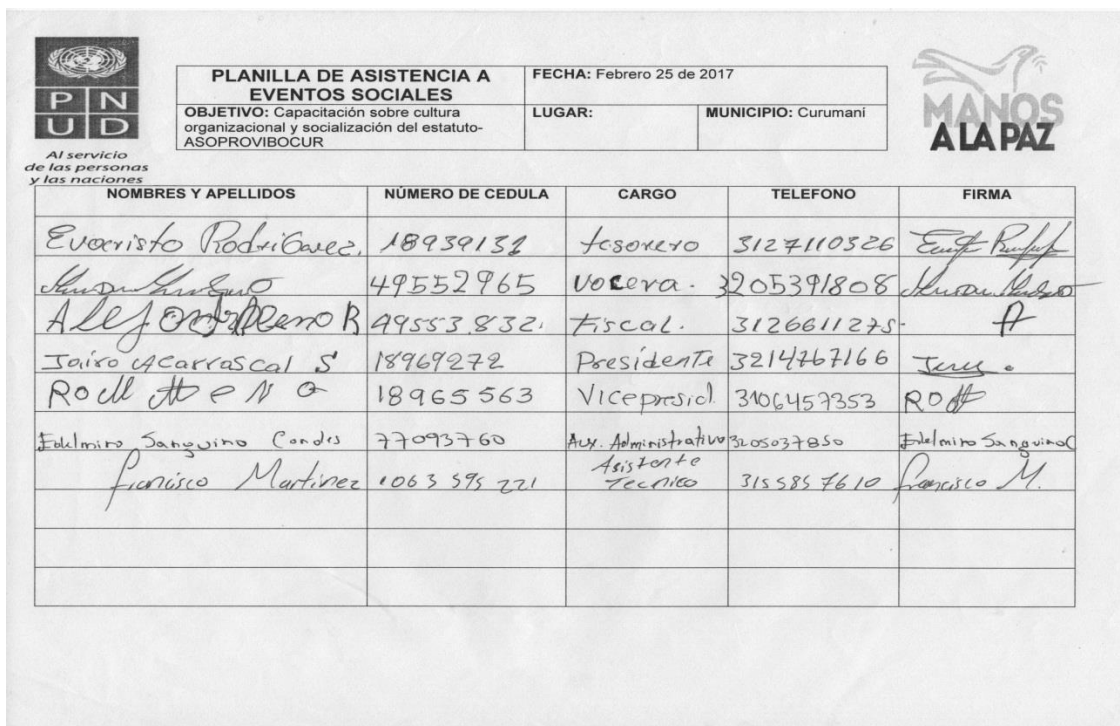 PNUD
Al servicio
de las personas
y las naciones
PLANILLA DE ASISTENCIA A
EVENTOS SOCIALES
FECHA: Febrero 25 de 2017
OBJETIVO: Capacitación sobre cultura
organizacional y socialización del estatuto-
ASOPROVIBOCUR
LUGAR:
MUNICIPIO: Curumaní
MANOS
A LA PAZ
NOMBRES Y APELLIDOS NÚMERO DE CEDULA CARGO TELEFONO FIRMA
Evaristo 18939131 tesorero 3127110326
49552965 vocera. 3205391808
49553832. Fiscal. 3126611275- A
Jairo Acarrascal S 18969272 Presidente 3214767166
18965563 Vicepresid. 3106457353
Edelmiro Sanguino Condis 77093760 Aux. Administrativo 3205037850 Edelmiro Sanguino C
Francisco Martinez 1063 595 221 Asistente Tecnico 315585 7610 Francisco M.